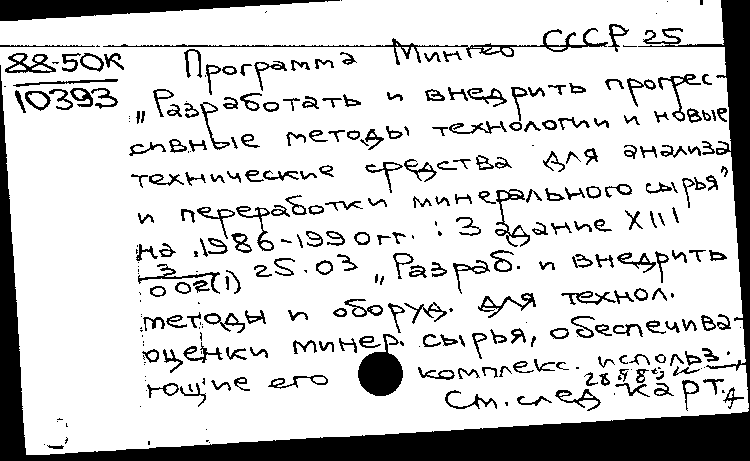 88-50К
10393
Программа Мингео СССР 25
„Разработать и внедрить прогрес-
сивные методы технологии и новые
технические средства для анализа
и переработки минерального сырья"
на 1986-1990гг. : Задание XIII
3
002(1) 25.03 „Разраб. и внедрить
методы и оборуд. для технол.
оценки минер. сырья, обеспечива-
ющие его комплекс. использ.,
См. след. карт.